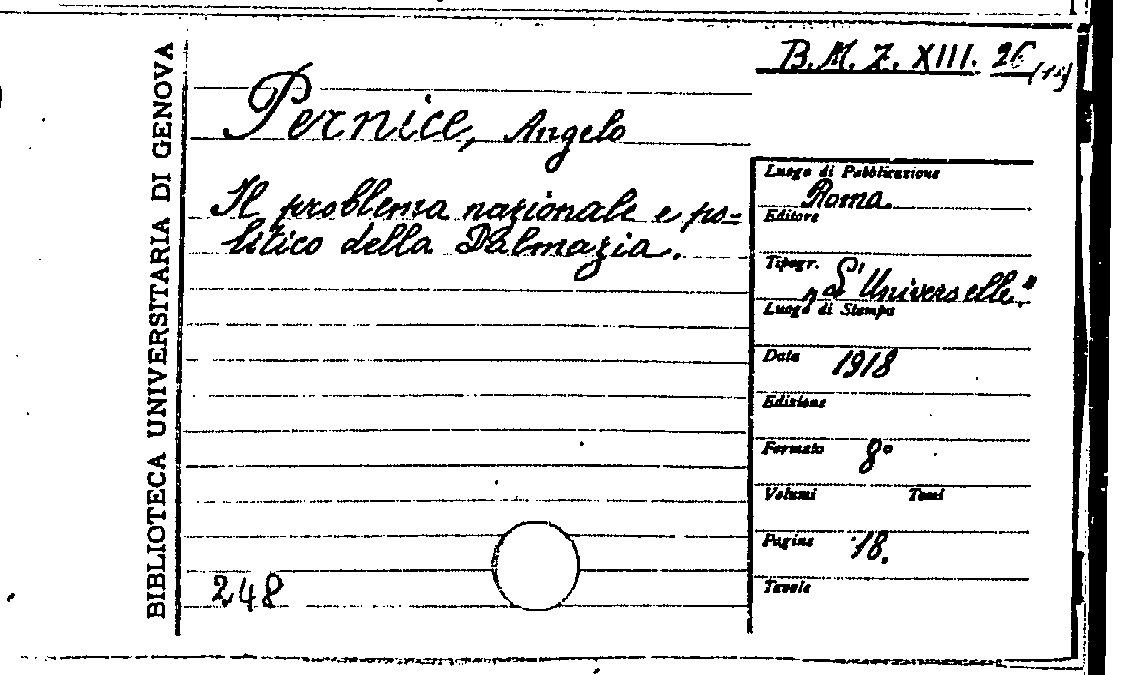 BIBLIOTECA UNIVERSITARIA DI GENOVA
B. M. Z. XIII. 26
Pernice, Angelo
Il problema nazionale e po=
litico della Dalmazia.
Luogo di Pubblicazione
Roma.
Editore
Tipogr. „L'Universelle"
Luogo di Stampa
Data 1918
Edizione
Formato 8°
Volumi Tomi
Pagine 18.
Tavole
248